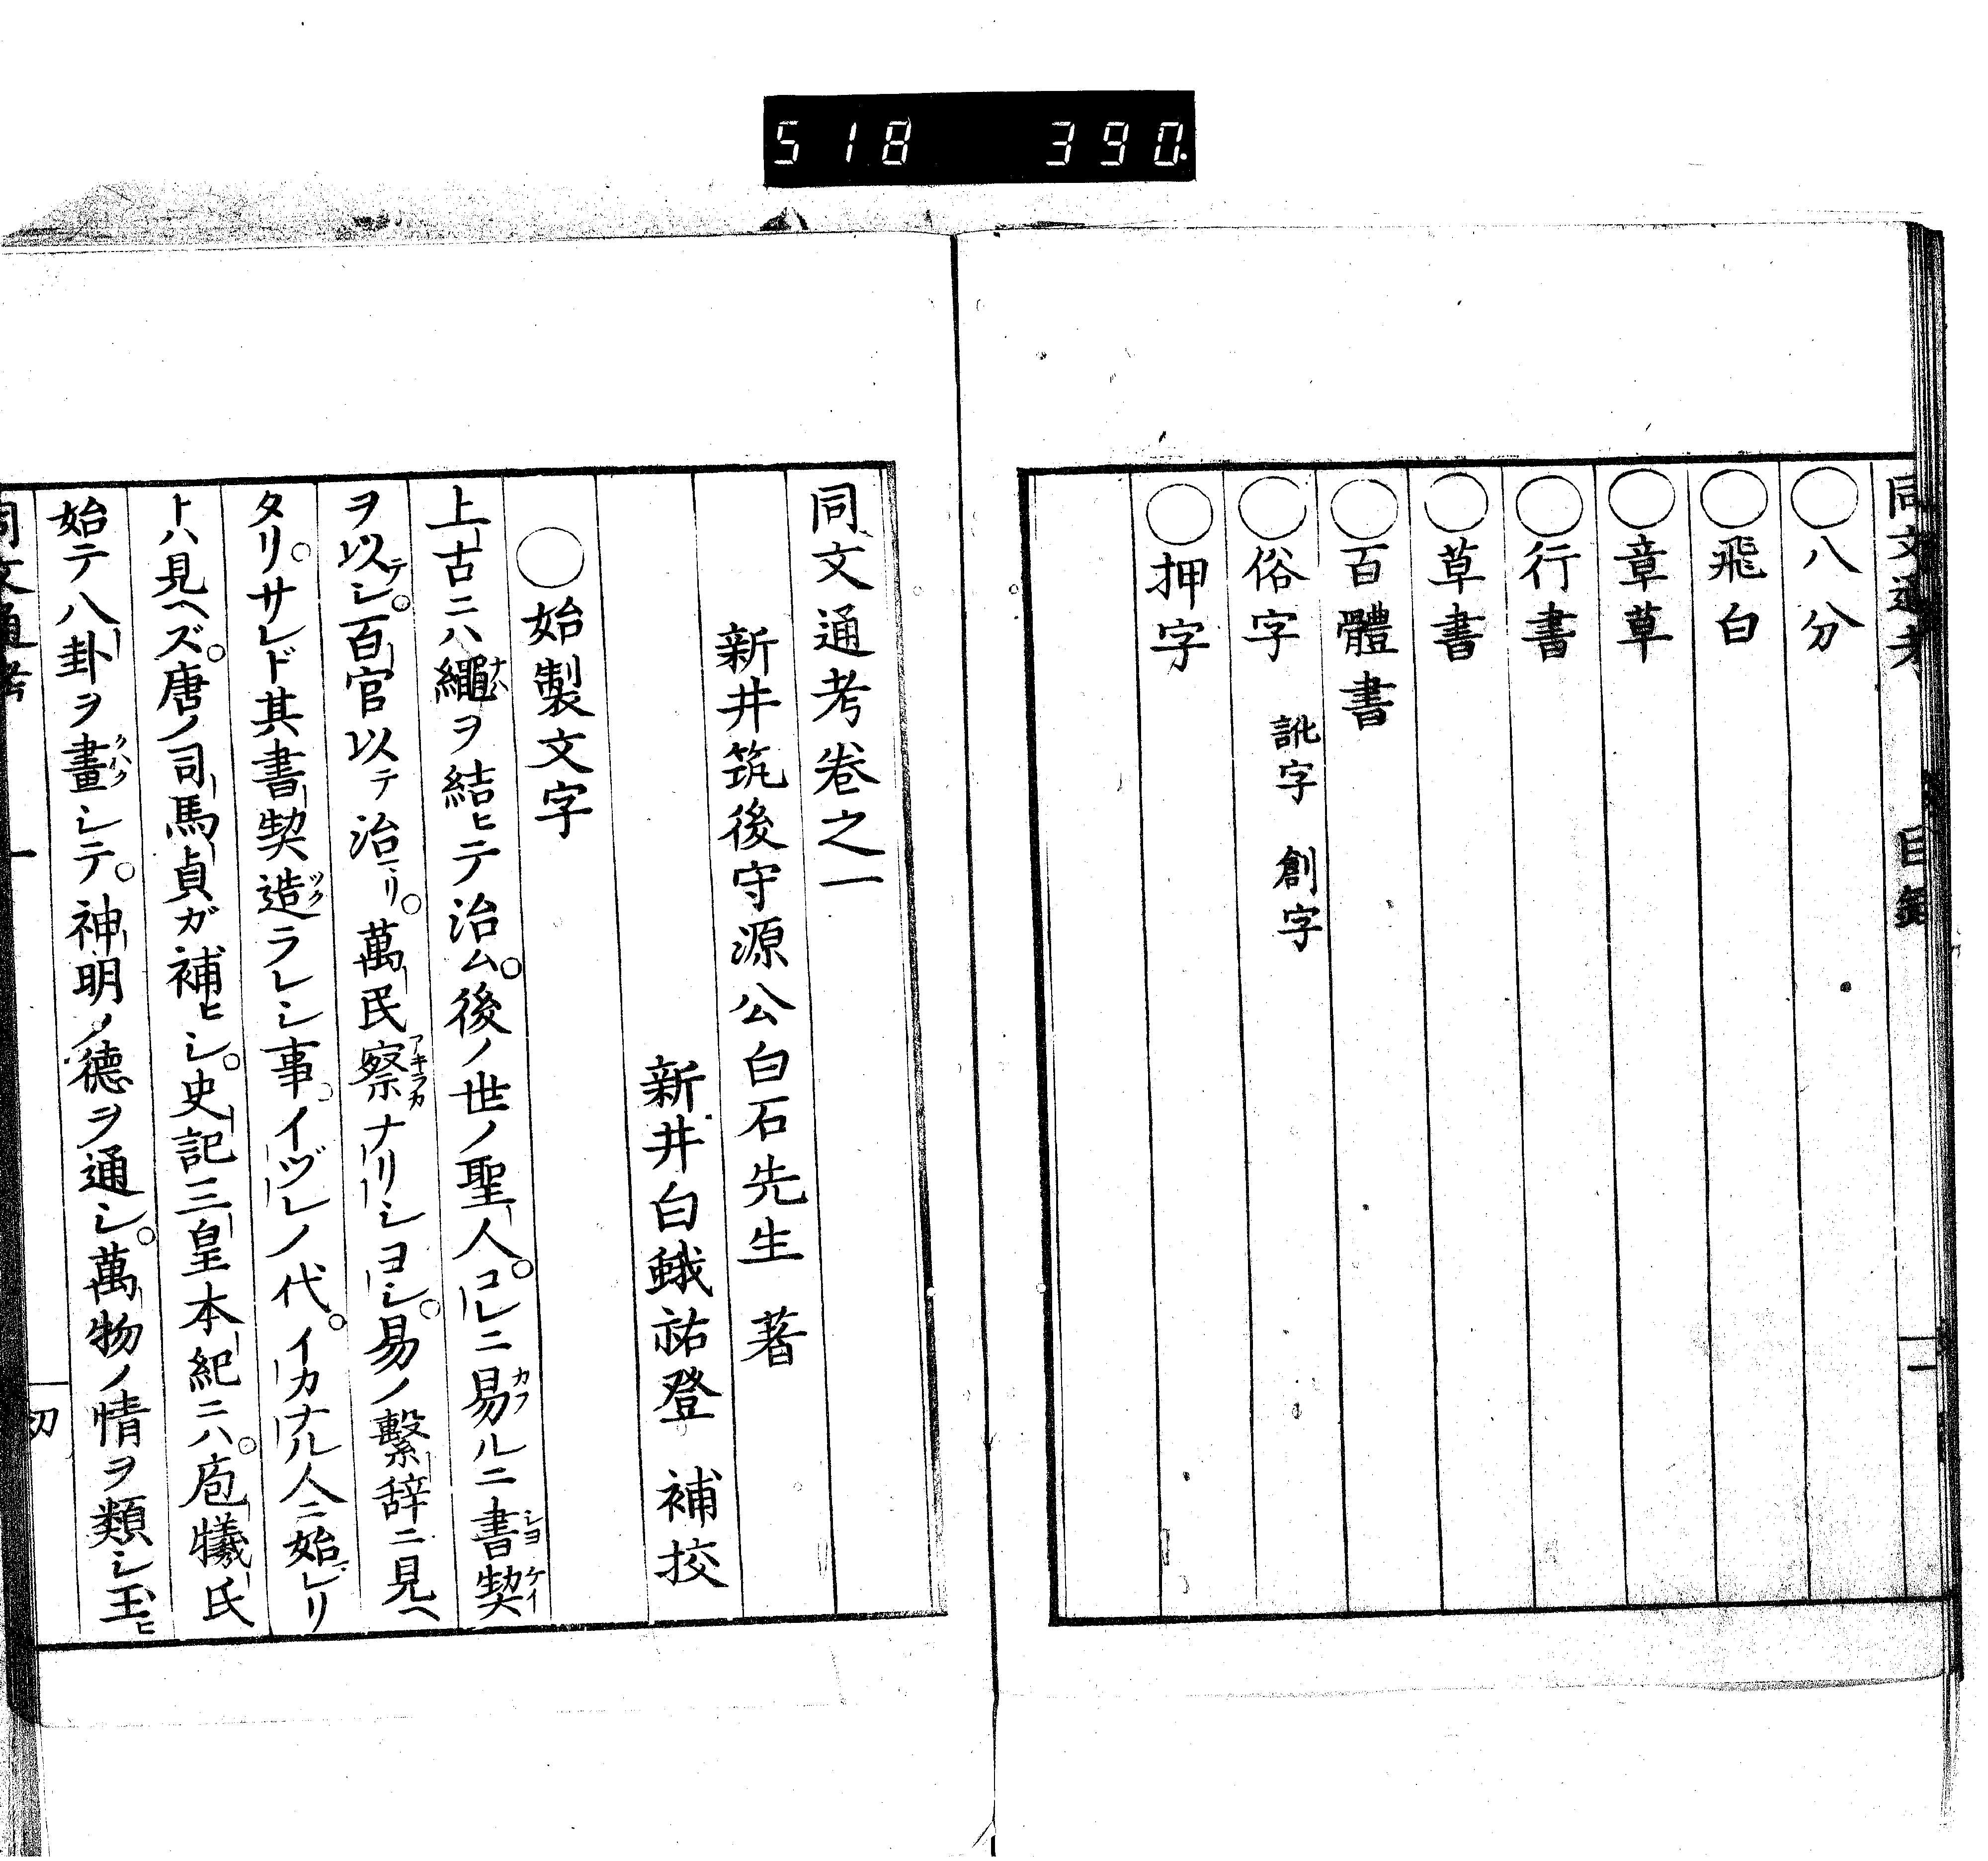 518 390
同文通考 目録 一
○八分
○飛白
○章草
○行書
○草書
○百體書
○俗字 訛字 創字
○押字
同文通考卷之一
新井筑後守源公白石先生 著
新井白蛾祐登 補挍
○始製文字
上古ニハ繩ヲ結ヒテ治ム。後ノ世ノ聖人。コレニ易ルニ書契
ヲ以テシ。百官以テ治リ。萬民察ナリシヨシ。易ノ繫辞ニ見ヘ
タリ。サレド其書契造ラレシ事。イヅレノ代。イカナル人ニ始レリ
トハ見ヘズ。唐ノ司馬貞ガ補ヒシ。史記三皇本紀ニハ。庖犧氏
始テ八卦ヲ畫シテ。神明ノ德ヲ通シ。萬物ノ情ヲ類シ玉ヒ
同文通考 一